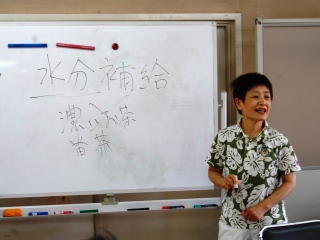 水分補給
濃いお茶
番茶